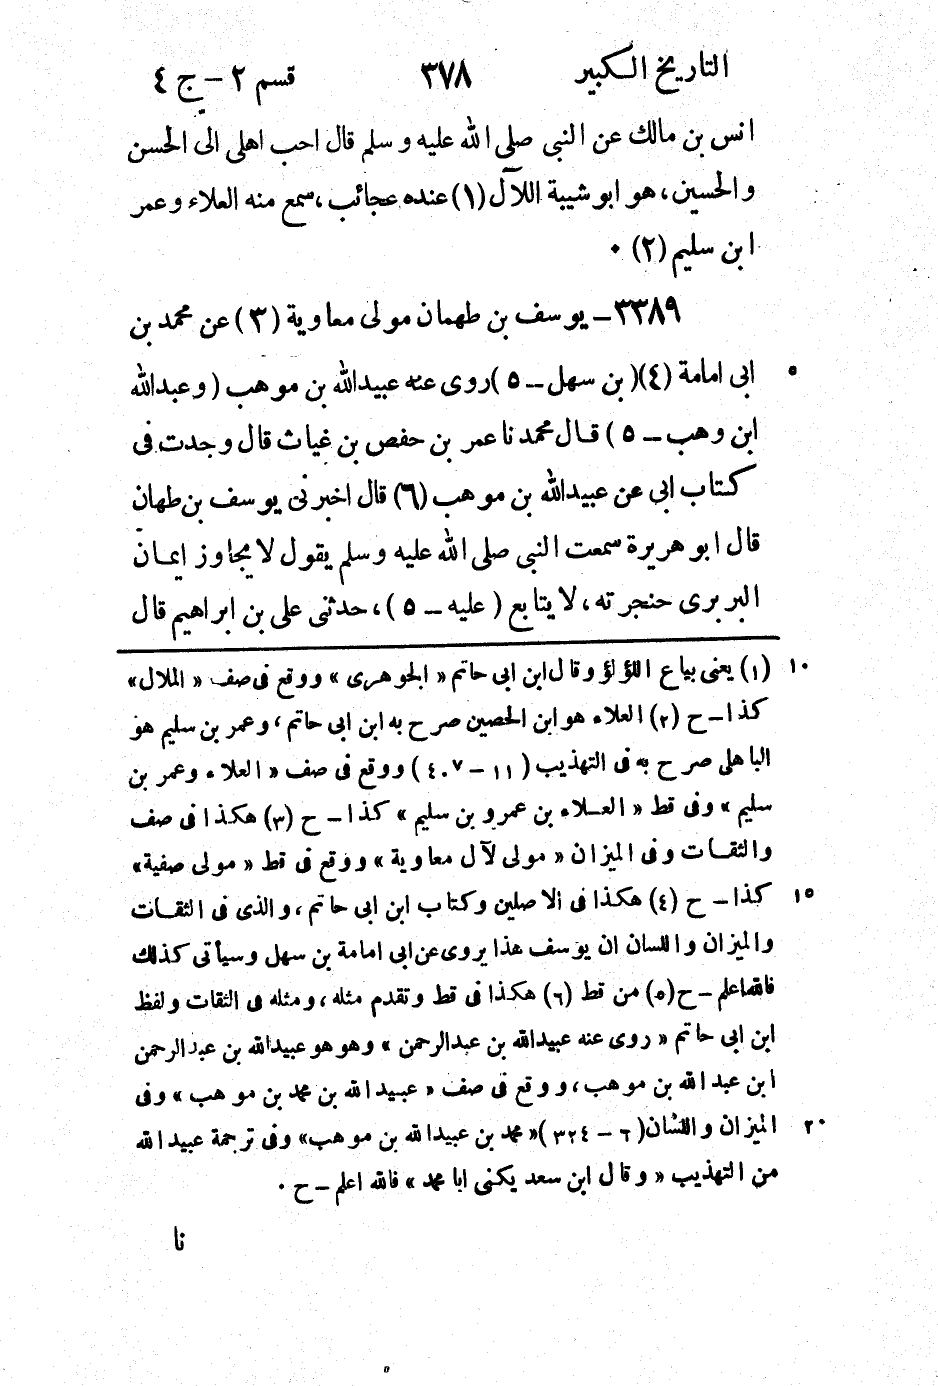 التاريخ الكبير ٣٧٨ قسم ٢ – ج ٤
انس بن مالك عن النبي صلى الله عليه وسلم قال احب اهلى الى الحسن
والحسين، هو ابو شيبة اللآل (١) عنده عجائب، سمع منه العلاء وعمر
ابن سليم (٢) ٠
٣٣٨٩ – يوسف بن طهمان مولى معاوية (٣) عن محمد بن
ابى امامة (٤) (بن سهل – ٥) روى عنه عبيدالله بن موهب (وعبدالله ٥
ابن وهب – ٥) قال محمد نا عمر بن حفص بن غياث قال وجدت فى
كتاب ابى عن عبيدالله بن موهب (٦) قال اخبرنى يوسف بن طهمان
قال ابو هريرة سمعت النبي صلى الله عليه وسلم يقول لا يجاوز ايمان
البربرى حنجرته، لا يتابع (عليه – ٥)، حدثنى على بن ابراهيم قال
(١) يعنى بياع اللؤلؤ وقال ابن ابى حاتم «الجوهرى» ووقع فى صف «الملال» ١٠
كذا – ح (٢) العلاء هو ابن الحصين صرح به ابن ابى حاتم، وعمر بن سليم هو
الباهلى صرح به فى التهذيب (١١ – ٤٠٧) ووقع فى صف «العلاء وعمر بن
سليم» وفى قط «العلاء بن عمرو بن سليم» كذا – ح (٣) هكذا فى صف
والثقات وفى الميزان «مولى لآل معاوية» ووقع فى قط «مولى صفية»
كذا – ح (٤) هكذا فى الاصلين وكتاب ابن ابى حاتم، والذى فى الثقات ١٥
والميزان واللسان ان يوسف هذا يروى عن ابى امامة بن سهل وسيأتى كذلك
فالله اعلم – ح (٥) من قط (٦) هكذا فى قط وتقدم مثله، ومثله فى الثقات ولفظ
ابن ابى حاتم «روى عنه عبيدالله بن عبدالرحمن» وهو هو عبيدالله بن عبدالرحمن
ابن عبد الله بن موهب، ووقع فى صف «عبيدالله بن محمد بن موهب» وفى
الميزان واللسان (٦ – ٣٢٤) «محمد بن عبيدالله بن موهب» وفى ترجمة عبيدالله ٢٠
من التهذيب «وقال ابن سعد يكنى ابا محمد» فالله اعلم – ح ٠
نا